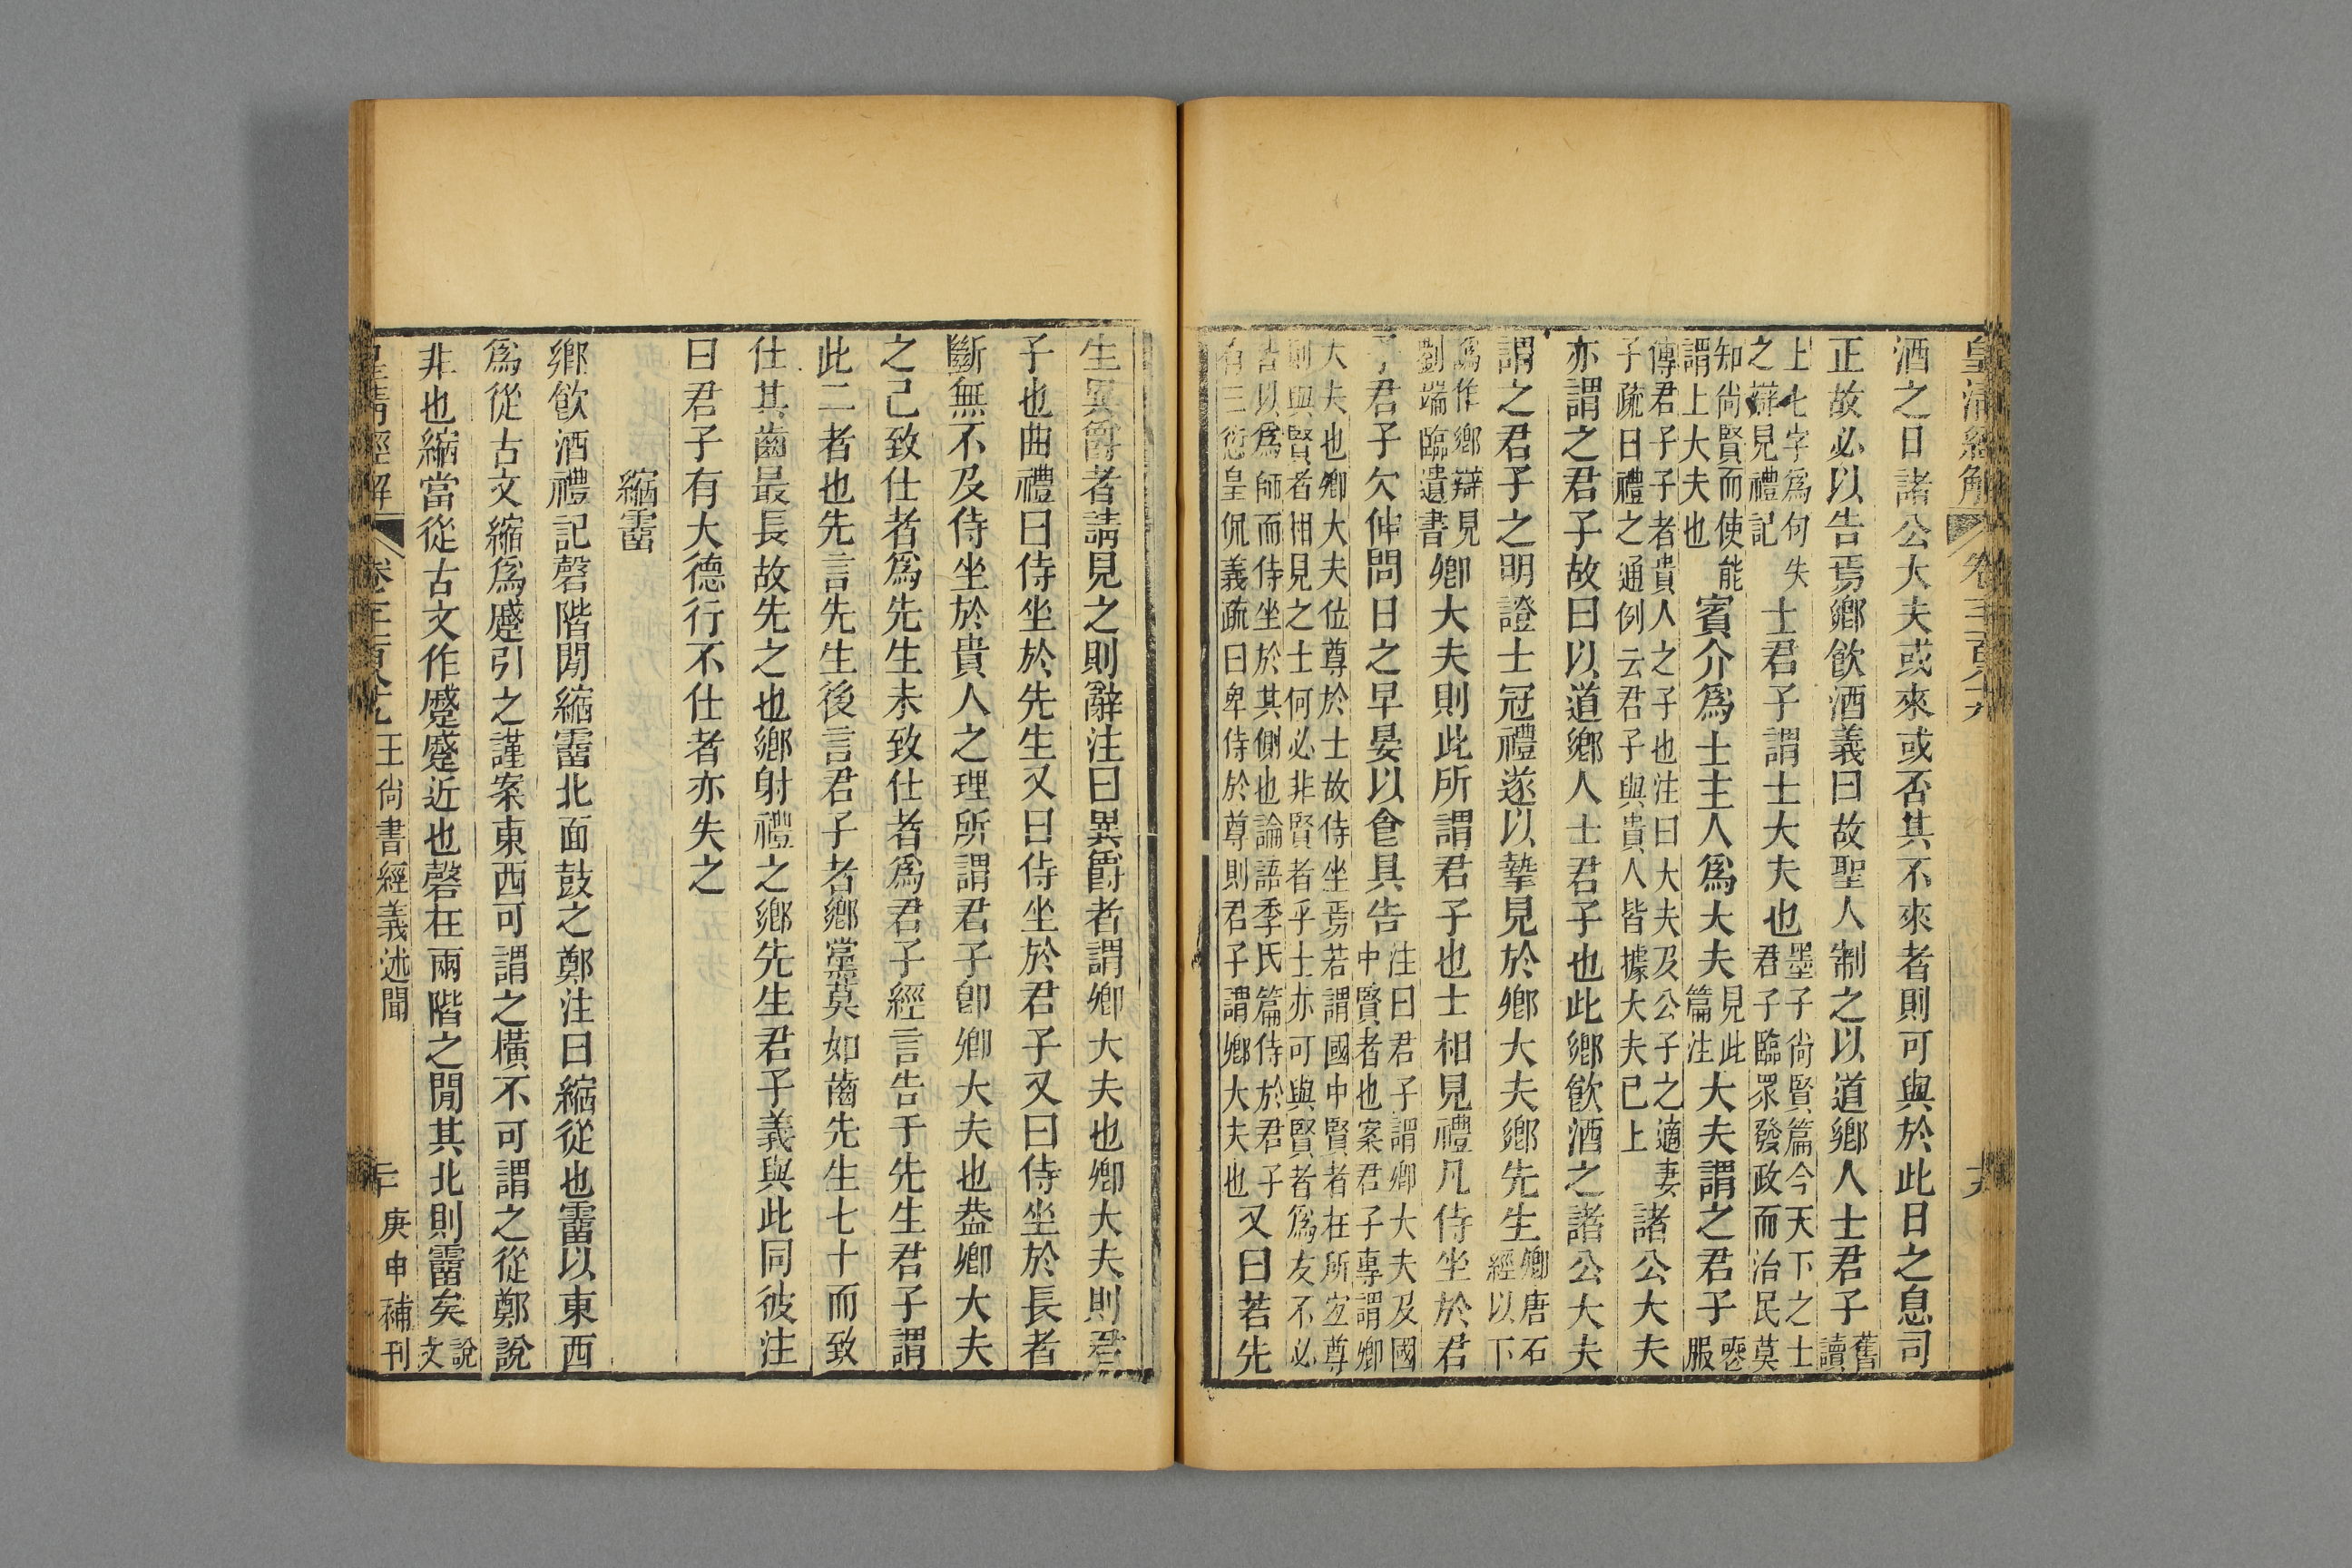 皇清經解 卷 十九
酒之日諸公大夫或來或否其不來者則可與於此日之息司
正故必以告焉鄉飲酒義曰故聖人制之以道鄉人士君子舊讀
上七字爲句失之辯見禮記士君子謂士大夫也墨子尚賢篇今天下之士君子臨眾發政而治民莫
知尚賢而使能謂上大夫也賓介爲士主人爲大夫見此篇注大夫謂之君子喪服
傳君子子者貴人之子也注曰大夫及公子之適妻子疏曰禮之通例云君子與貴人皆據大夫已上諸公大夫
亦謂之君子故曰以道鄉人士君子也此鄉飲酒之諸公大夫
謂之君子之明證士冠禮遂以摯見於鄉大夫鄉先生鄉唐石經以下
爲作鄉辯見劉端臨遺書鄉大夫則此所謂君子也士相見禮凡侍坐於君
子君子欠伸問日之早晏以食具告注曰君子謂卿大夫及國中賢者也案君子專謂卿
大夫也卿大夫位尊於士故侍坐焉若謂國中賢者在所宜尊則與賢者相見之士何必非賢者乎士亦可與賢者爲友不必
皆以爲師而侍坐於其側也論語季氏篇侍於君子有三愆皇侃義疏曰卑侍於尊則君子謂鄉大夫也又曰若先
生異爵者請見之則辭注曰異爵者謂卿大夫也卿大夫則君
子也曲禮曰侍坐於先生又曰侍坐於君子又曰侍坐於長者
斷無不及侍坐於貴人之理所謂君子卽卿大夫也葢卿大夫
之已致仕者爲先生未致仕者爲君子經言告于先生君子謂
此二者也先言先生後言君子者鄉黨莫如齒先生七十而致
仕其齒最長故先之也鄉射禮之鄉先生君子義與此同彼注
曰君子有大德行不仕者亦失之
縮霤
鄉飲酒禮記磬階閒縮霤北面鼓之鄭注曰縮從也霤以東西
爲從古文縮爲蹙引之謹案東西可謂之橫不可謂之從鄭說
非也縮當從古文作蹙蹙近也磬在兩階之閒其北則霤矣說文
皇清經解 卷 王尙書經義述聞 二十 庚申補刊